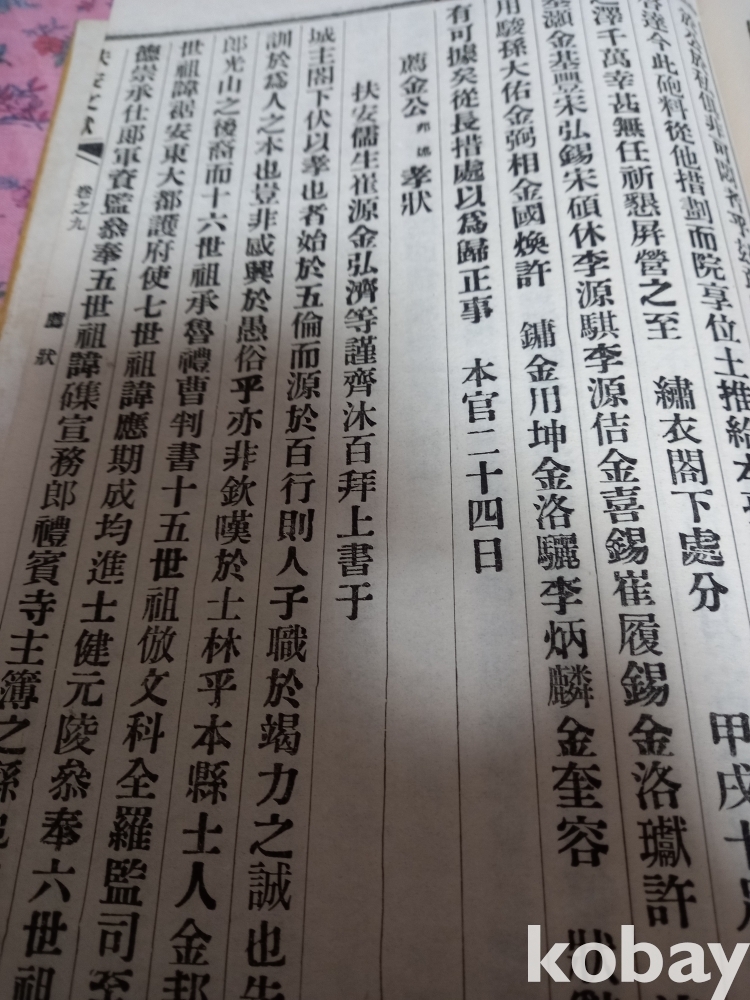 措劃而院享位土推給本
書達今此砲料從他
之澤千萬幸甚無任祈懇屏營之至 繡衣閣下處分 甲戌十
泰灝金基豐宋弘錫宋碩休李源騏李源佶金喜錫崔履錫金洛瓛許
用駿孫大佑金弼相金國煥許 鏞金用坤金洛驪李炳麟金奎容 狀
有可據矣從長措處以爲歸正事 本官二十四日
薦金公 孝狀
扶安儒生崔源金弘濟等謹齊沐百拜上書于
城主閣下伏以孝也者始於五倫而源於百行則人子職於竭力之誠也
訓於爲人之本也豈非感興於愚俗乎亦非欽嘆於士林乎本縣士人金邦
郎光山之後裔而十六世祖承魯禮曹判書十五世祖倣文科全羅監司至
世祖諱琚安東大都護府使七世祖諱應期成均進士健元陵叅奉六世祖
德崇承仕郎軍資監叅奉五世祖諱磼宣務郎禮賓寺主簿之孫也
扶安文獻 卷之九 薦狀
kobay